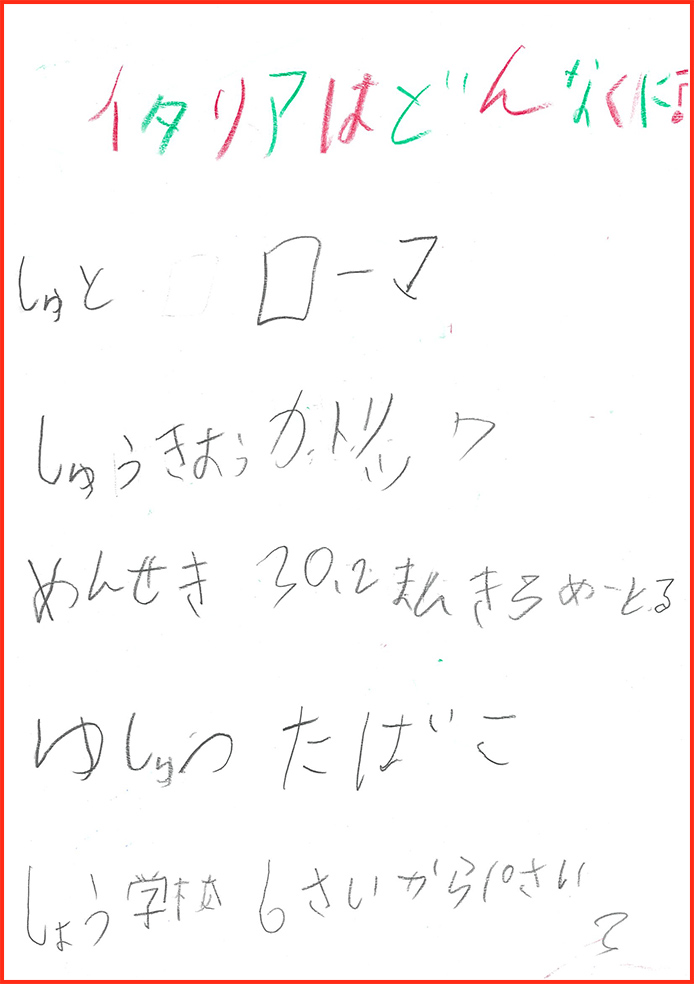 イタリアはどんなくに?
しゅと ローマ
しゅうきょう カトリック
めんせき 30.2まんきろめーとる
ゆしゅつ たばこ
しょう学校 6さいから10さい